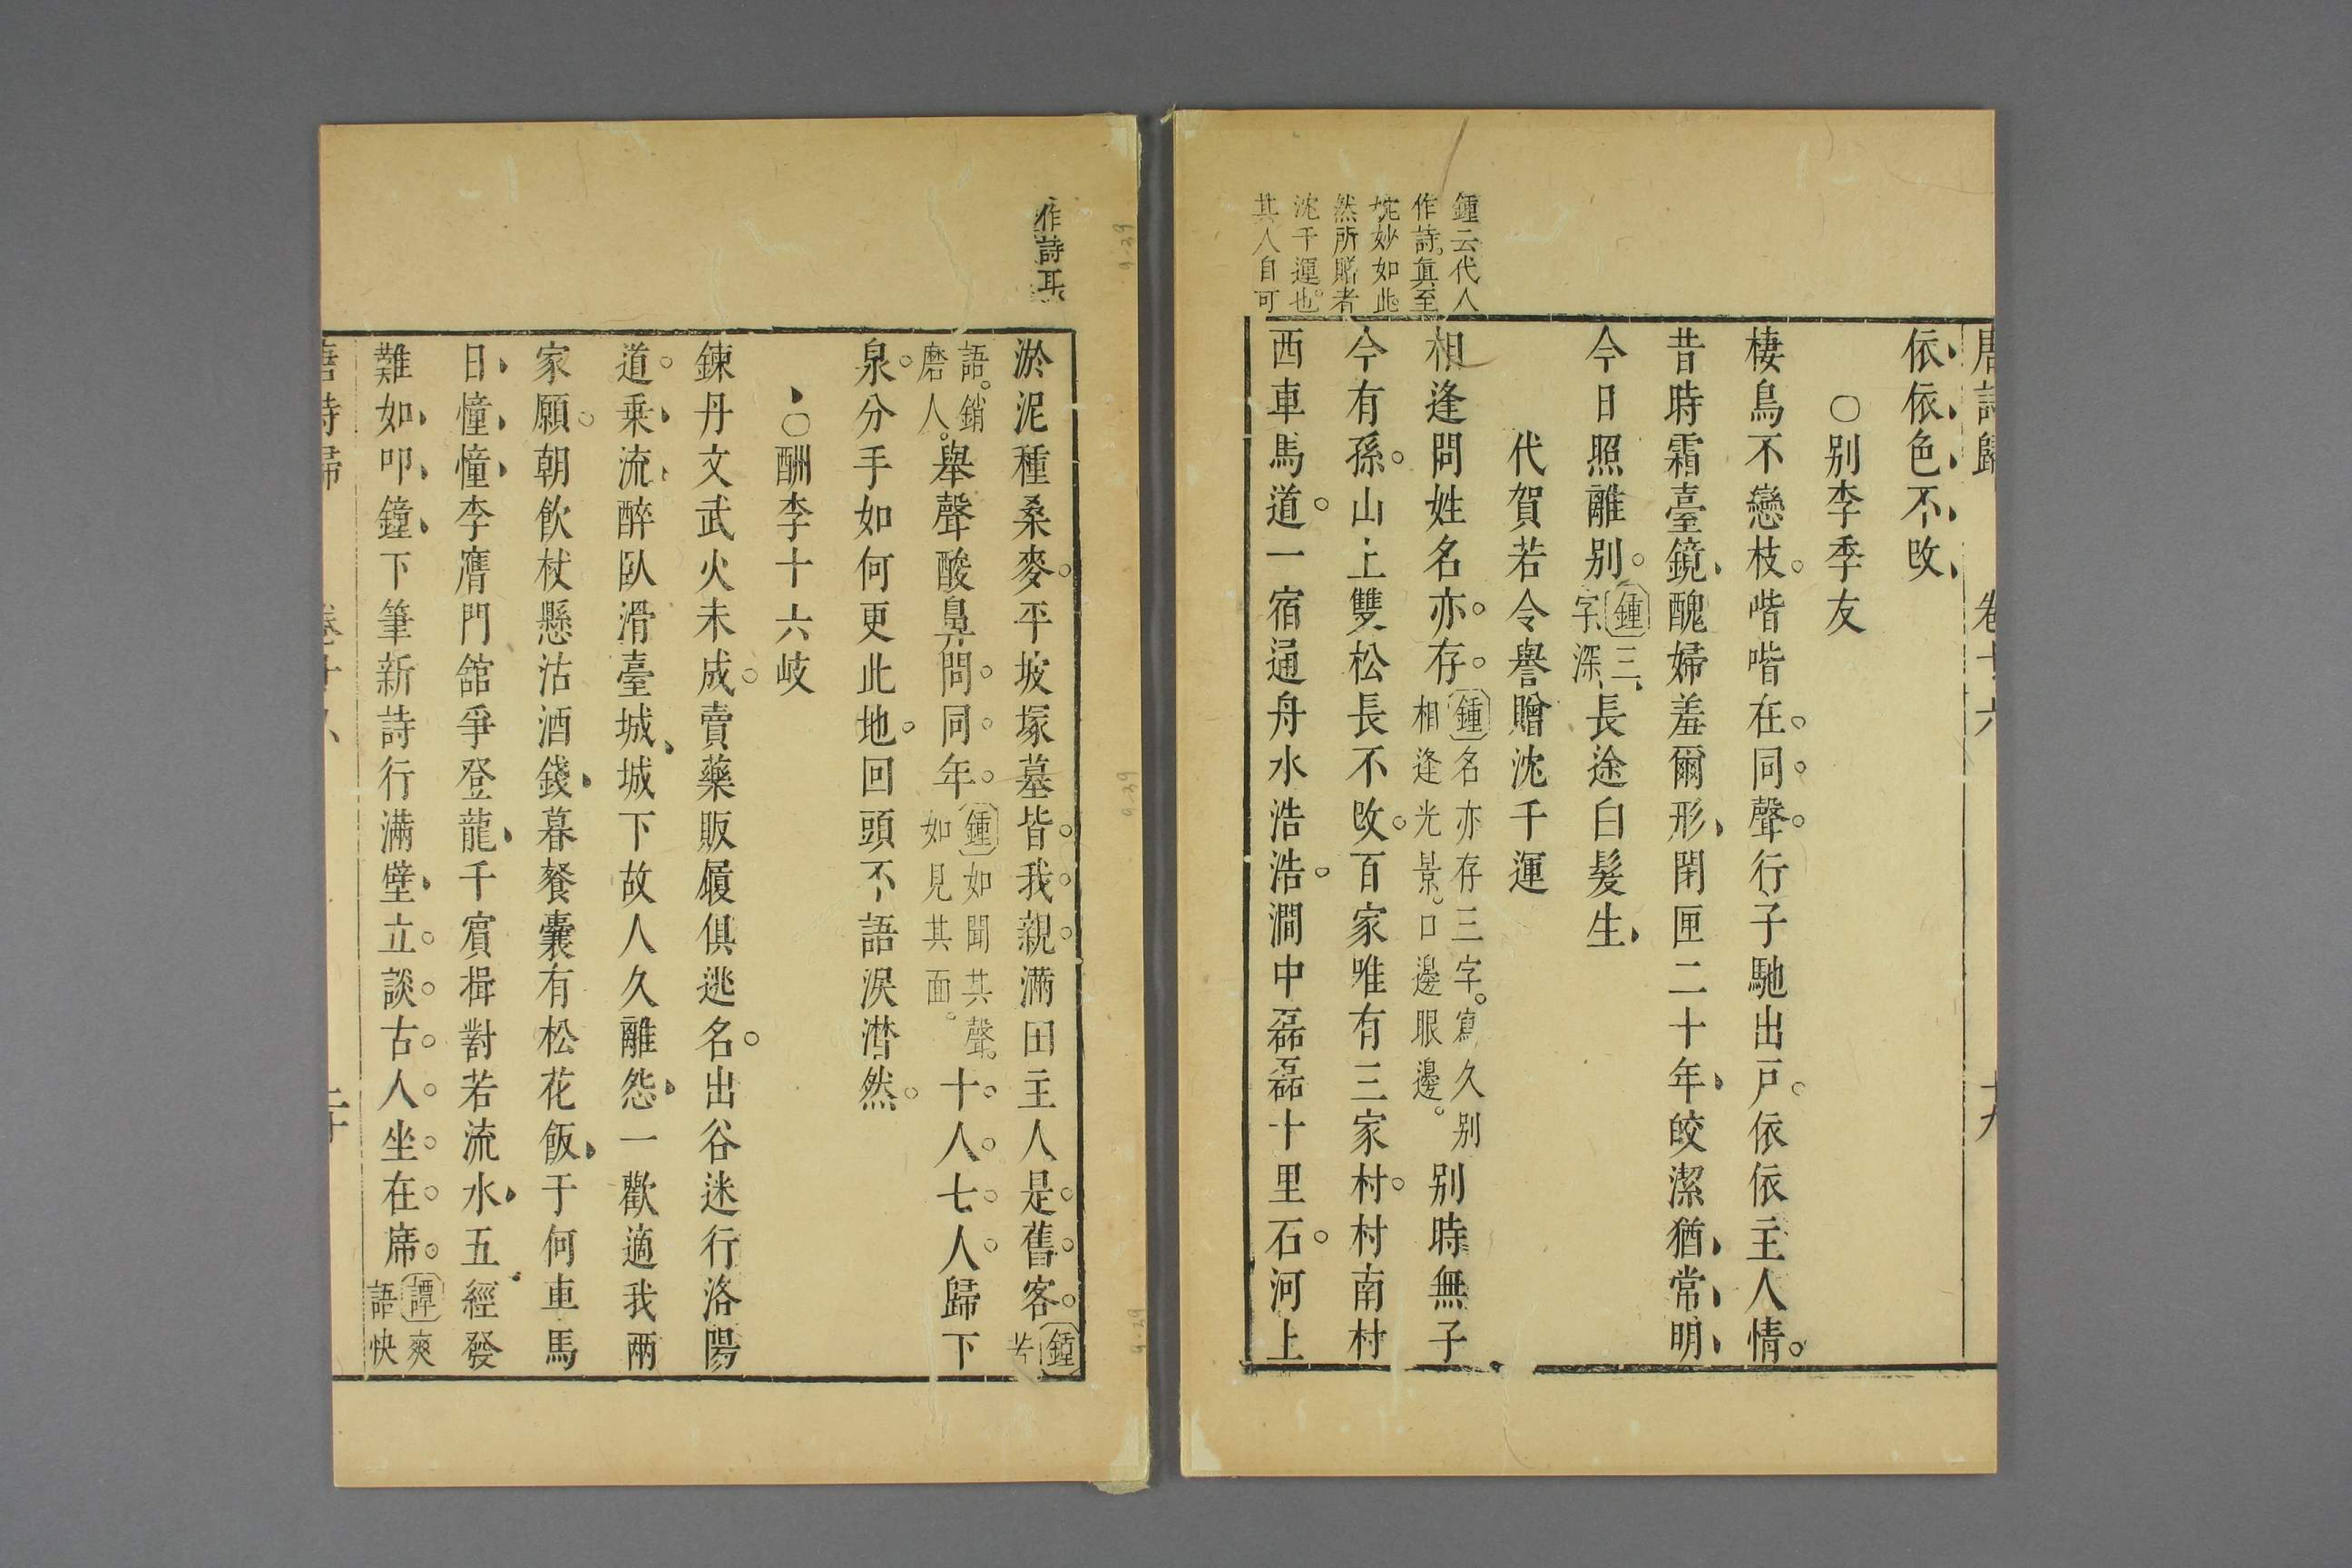 唐詩歸 卷十六 十九
依依色不改
○別李季友
棲鳥不戀枝。喈喈在同聲。行子馳出戶。依依主人情。
昔時霜臺鏡醜婦羞爾形閉匣二十年皎潔猶常明
今日照離別。鍾三字深長途白髮生
代賀若令譽贈沈千運
相逢問姓名亦存。鍾名亦存三字。寫久別相逢光景。口邊眼邊。別時無子
今有孫。山上雙松長不改。百家唯有三家村。村南村
西車馬道。一宿通舟水浩浩。澗中磊磊十里石。河上
鍾云代人
作詩。眞至
宛妙如此。
然所贈者
沈千運也。
其人自可
作詩耳
淤泥種桑麥。平坡塚墓皆我親。滿田主人是舊客。鍾苦
語。銷磨人。舉聲酸鼻問同年。鍾如聞其聲。如見其面。十人七人歸下
泉。分手如何更此地。回頭不語淚潸然。
○酬李十六岐
鍊丹文武火未成。賣藥販履俱逃名。出谷迷行洛陽
道。乗流醉臥滑臺城城下故人久離怨一歡適我兩
家願。朝飲杖懸沽酒錢暮餐囊有松花飯于何車馬
日憧憧李膺門館爭登龍千賓揖對若流水五經發
難如叩鐘下筆新詩行滿壁立談古人坐在席。譚爽語快
唐詩歸 卷十六 二十